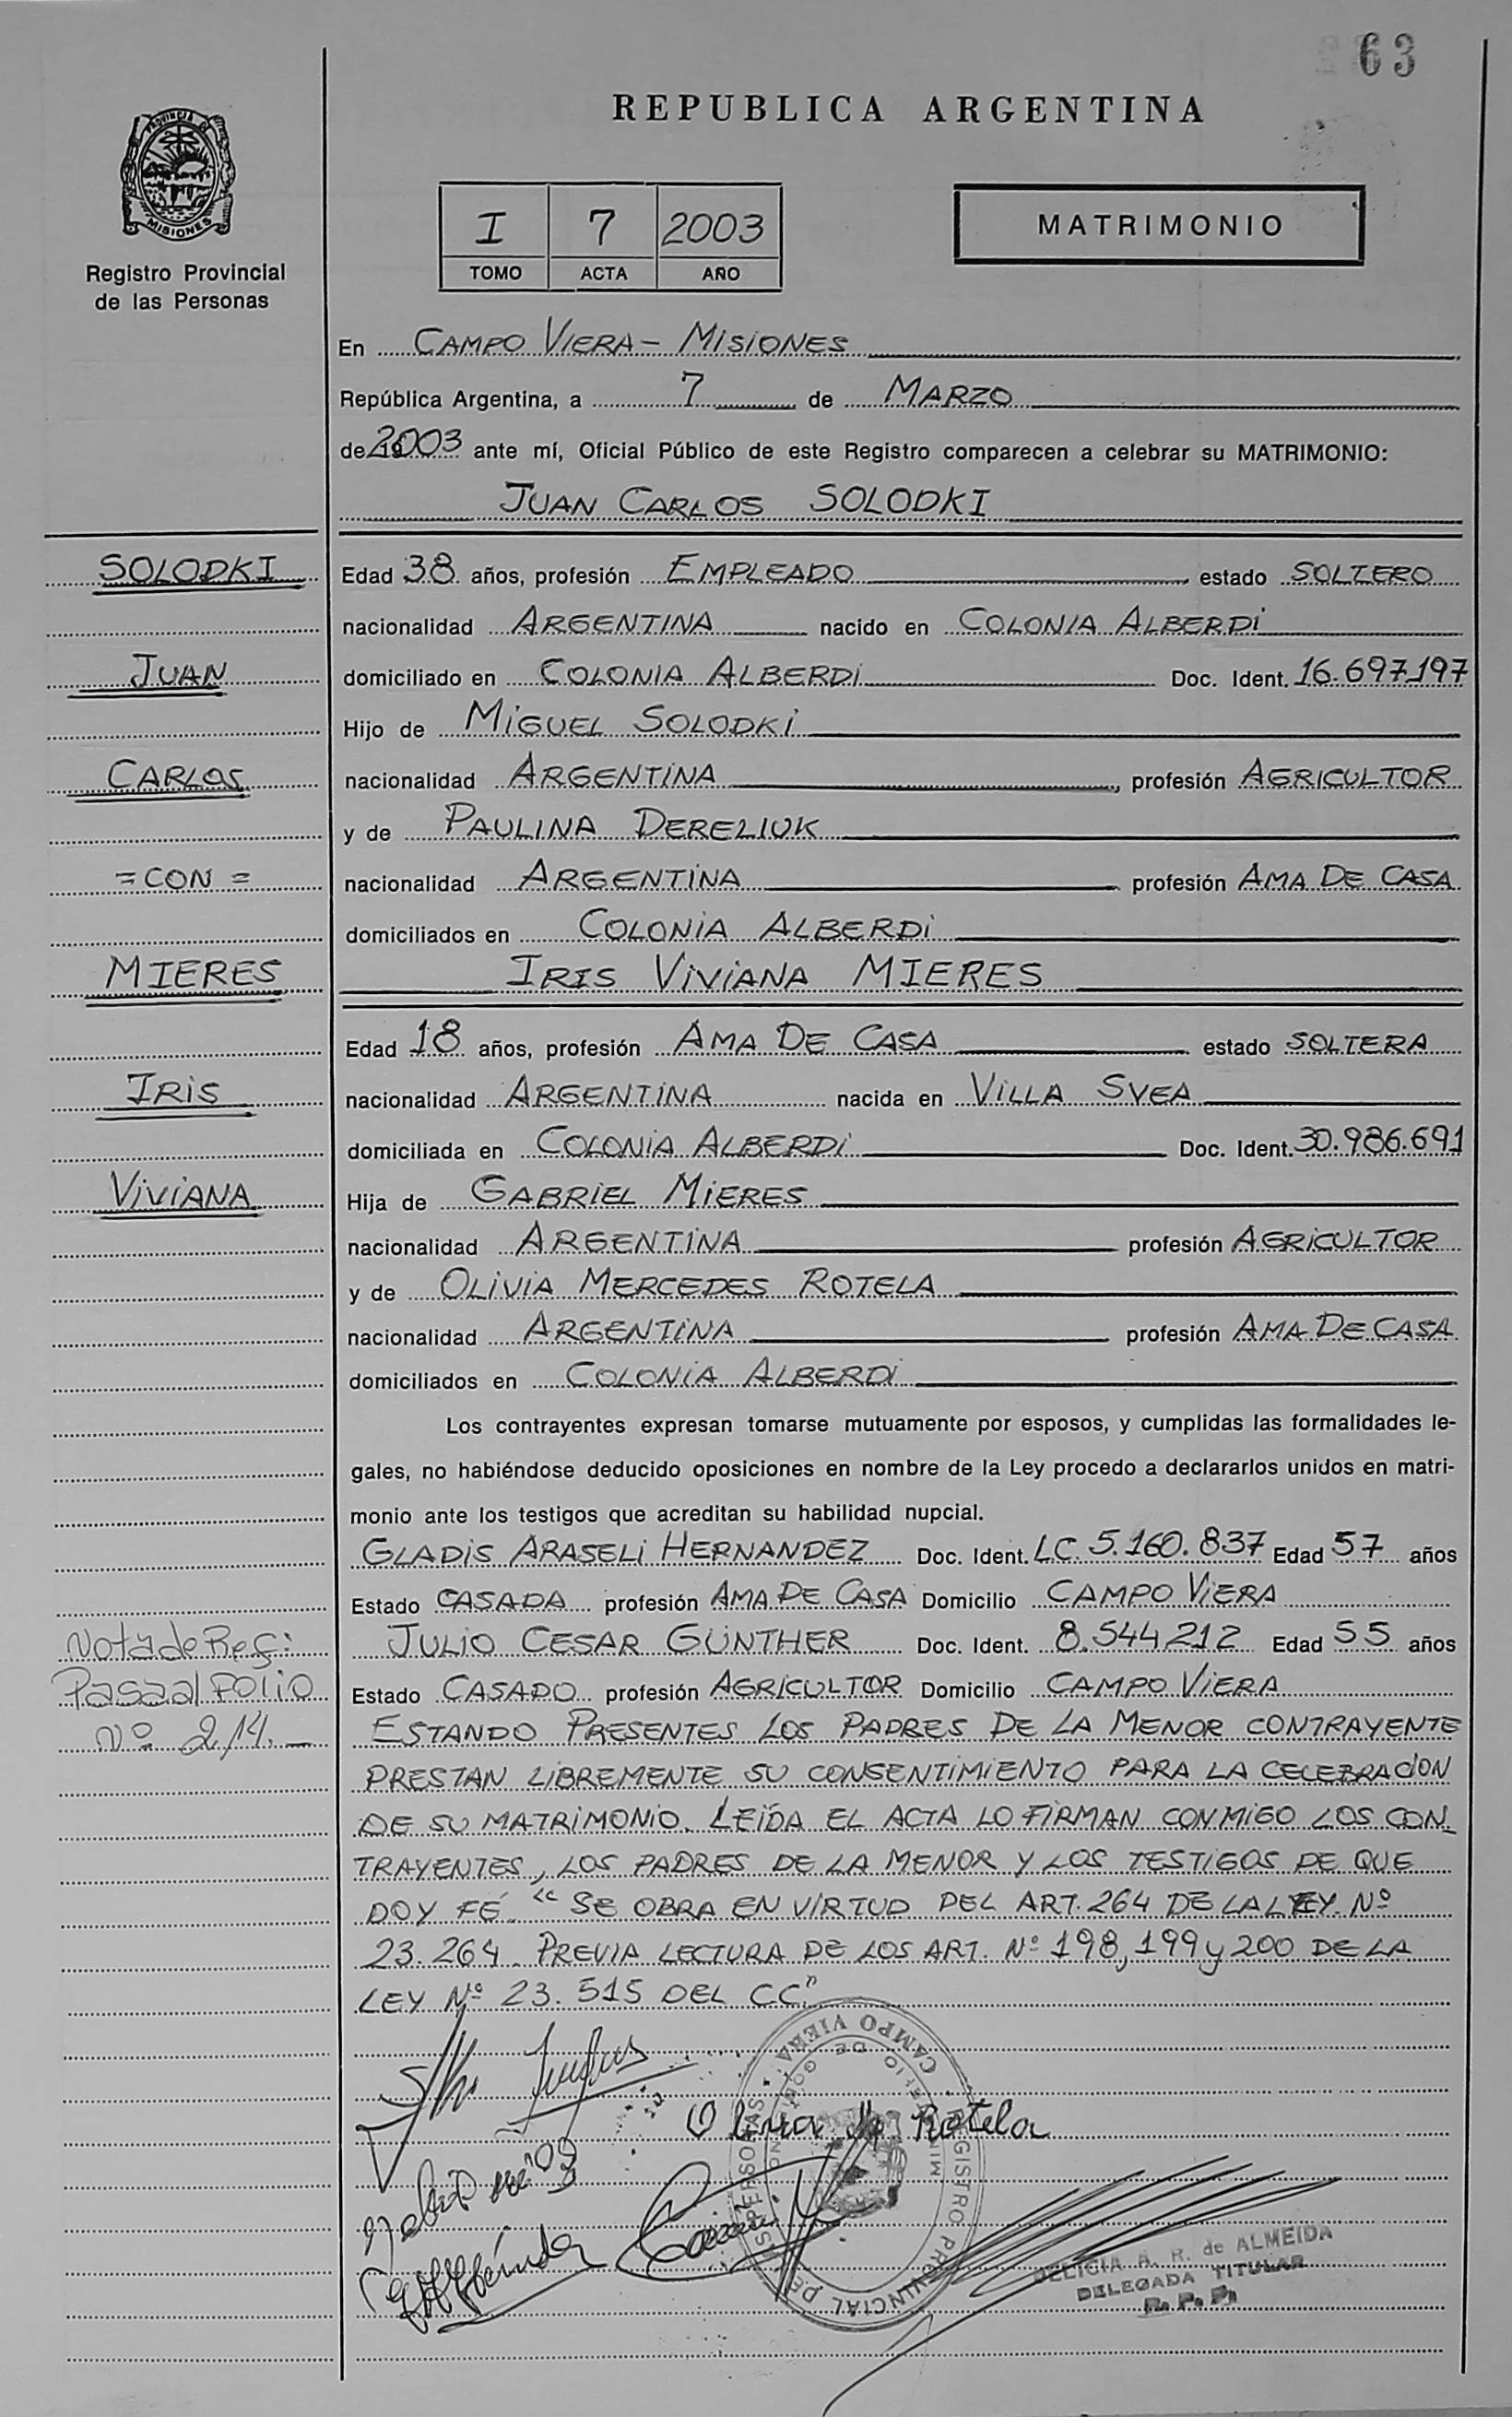 63
REPUBLICA ARGENTINA
PROVINCIA DE
MISIONES
Registro Provincial
de las Personas
I 7 2003
TOMO ACTA AÑO
MATRIMONIO
En CAMPO VIERA - MISIONES
República Argentina, a 7 de MARZO
de 2003 ante mí, Oficial Público de este Registro comparecen a celebrar su MATRIMONIO:
JUAN CARLOS SOLODKI
SOLODKI
Edad 38 años, profesión EMPLEADO estado SOLTERO
nacionalidad ARGENTINA nacido en COLONIA ALBERDI
JUAN
domiciliado en COLONIA ALBERDI Doc. Ident. 16.697.197
Hijo de MIGUEL SOLODKI
CARLOS
nacionalidad ARGENTINA, profesión AGRICULTOR
y de PAULINA DERELIUK
=CON=
nacionalidad ARGENTINA profesión AMA DE CASA
domiciliados en COLONIA ALBERDI
MIERES
IRIS VIVIANA MIERES
Edad 18 años, profesión AMA DE CASA estado SOLTERA
IRIS
nacionalidad ARGENTINA nacida en VILLA SVEA
domiciliada en COLONIA ALBERDI Doc. Ident. 30.986.691
VIVIANA
Hija de GABRIEL MIERES
nacionalidad ARGENTINA profesión AGRICULTOR
y de OLIVIA MERCEDES ROTELA
nacionalidad ARGENTINA profesión AMA DE CASA
domiciliados en COLONIA ALBERDI
Los contrayentes expresan tomarse mutuamente por esposos, y cumplidas las formalidades le-
gales, no habiéndose deducido oposiciones en nombre de la Ley procedo a declararlos unidos en matri-
monio ante los testigos que acreditan su habilidad nupcial.
GLADIS ARASELI HERNANDEZ Doc. Ident. LC. 5.160.837 Edad 57 años
Estado CASADA profesión AMA DE CASA Domicilio CAMPO VIERA
JULIO CESAR GÜNTHER Doc. Ident. 8.544.212 Edad 55 años
Estado CASADO profesión AGRICULTOR Domicilio CAMPO VIERA
Nota de Ref:
Pasa al Folio
Nº 214.-
ESTANDO PRESENTES LOS PADRES DE LA MENOR CONTRAYENTE
PRESTAN LIBREMENTE SU CONSENTIMIENTO PARA LA CELEBRACION
DE SU MATRIMONIO. LEÍDA EL ACTA LO FIRMAN CONMIGO LOS CON-
TRAYENTES, LOS PADRES DE LA MENOR Y LOS TESTIGOS DE QUE
DOY FÉ. "SE OBRA EN VIRTUD DEL ART. 264 DE LA LEY. Nº
23.264. PREVIA LECTURA DE LOS ART. Nº 198, 199 y 200 DE LA
LEY Nº 23.515 DEL CC"
Olivia M. Rotela
REGISTRO PROVINCIAL DE LAS PERSONAS
CAMPO VIERA
DELICIA A. R. de ALMEIDA
DELEGADA TITULAR
R. P. P.